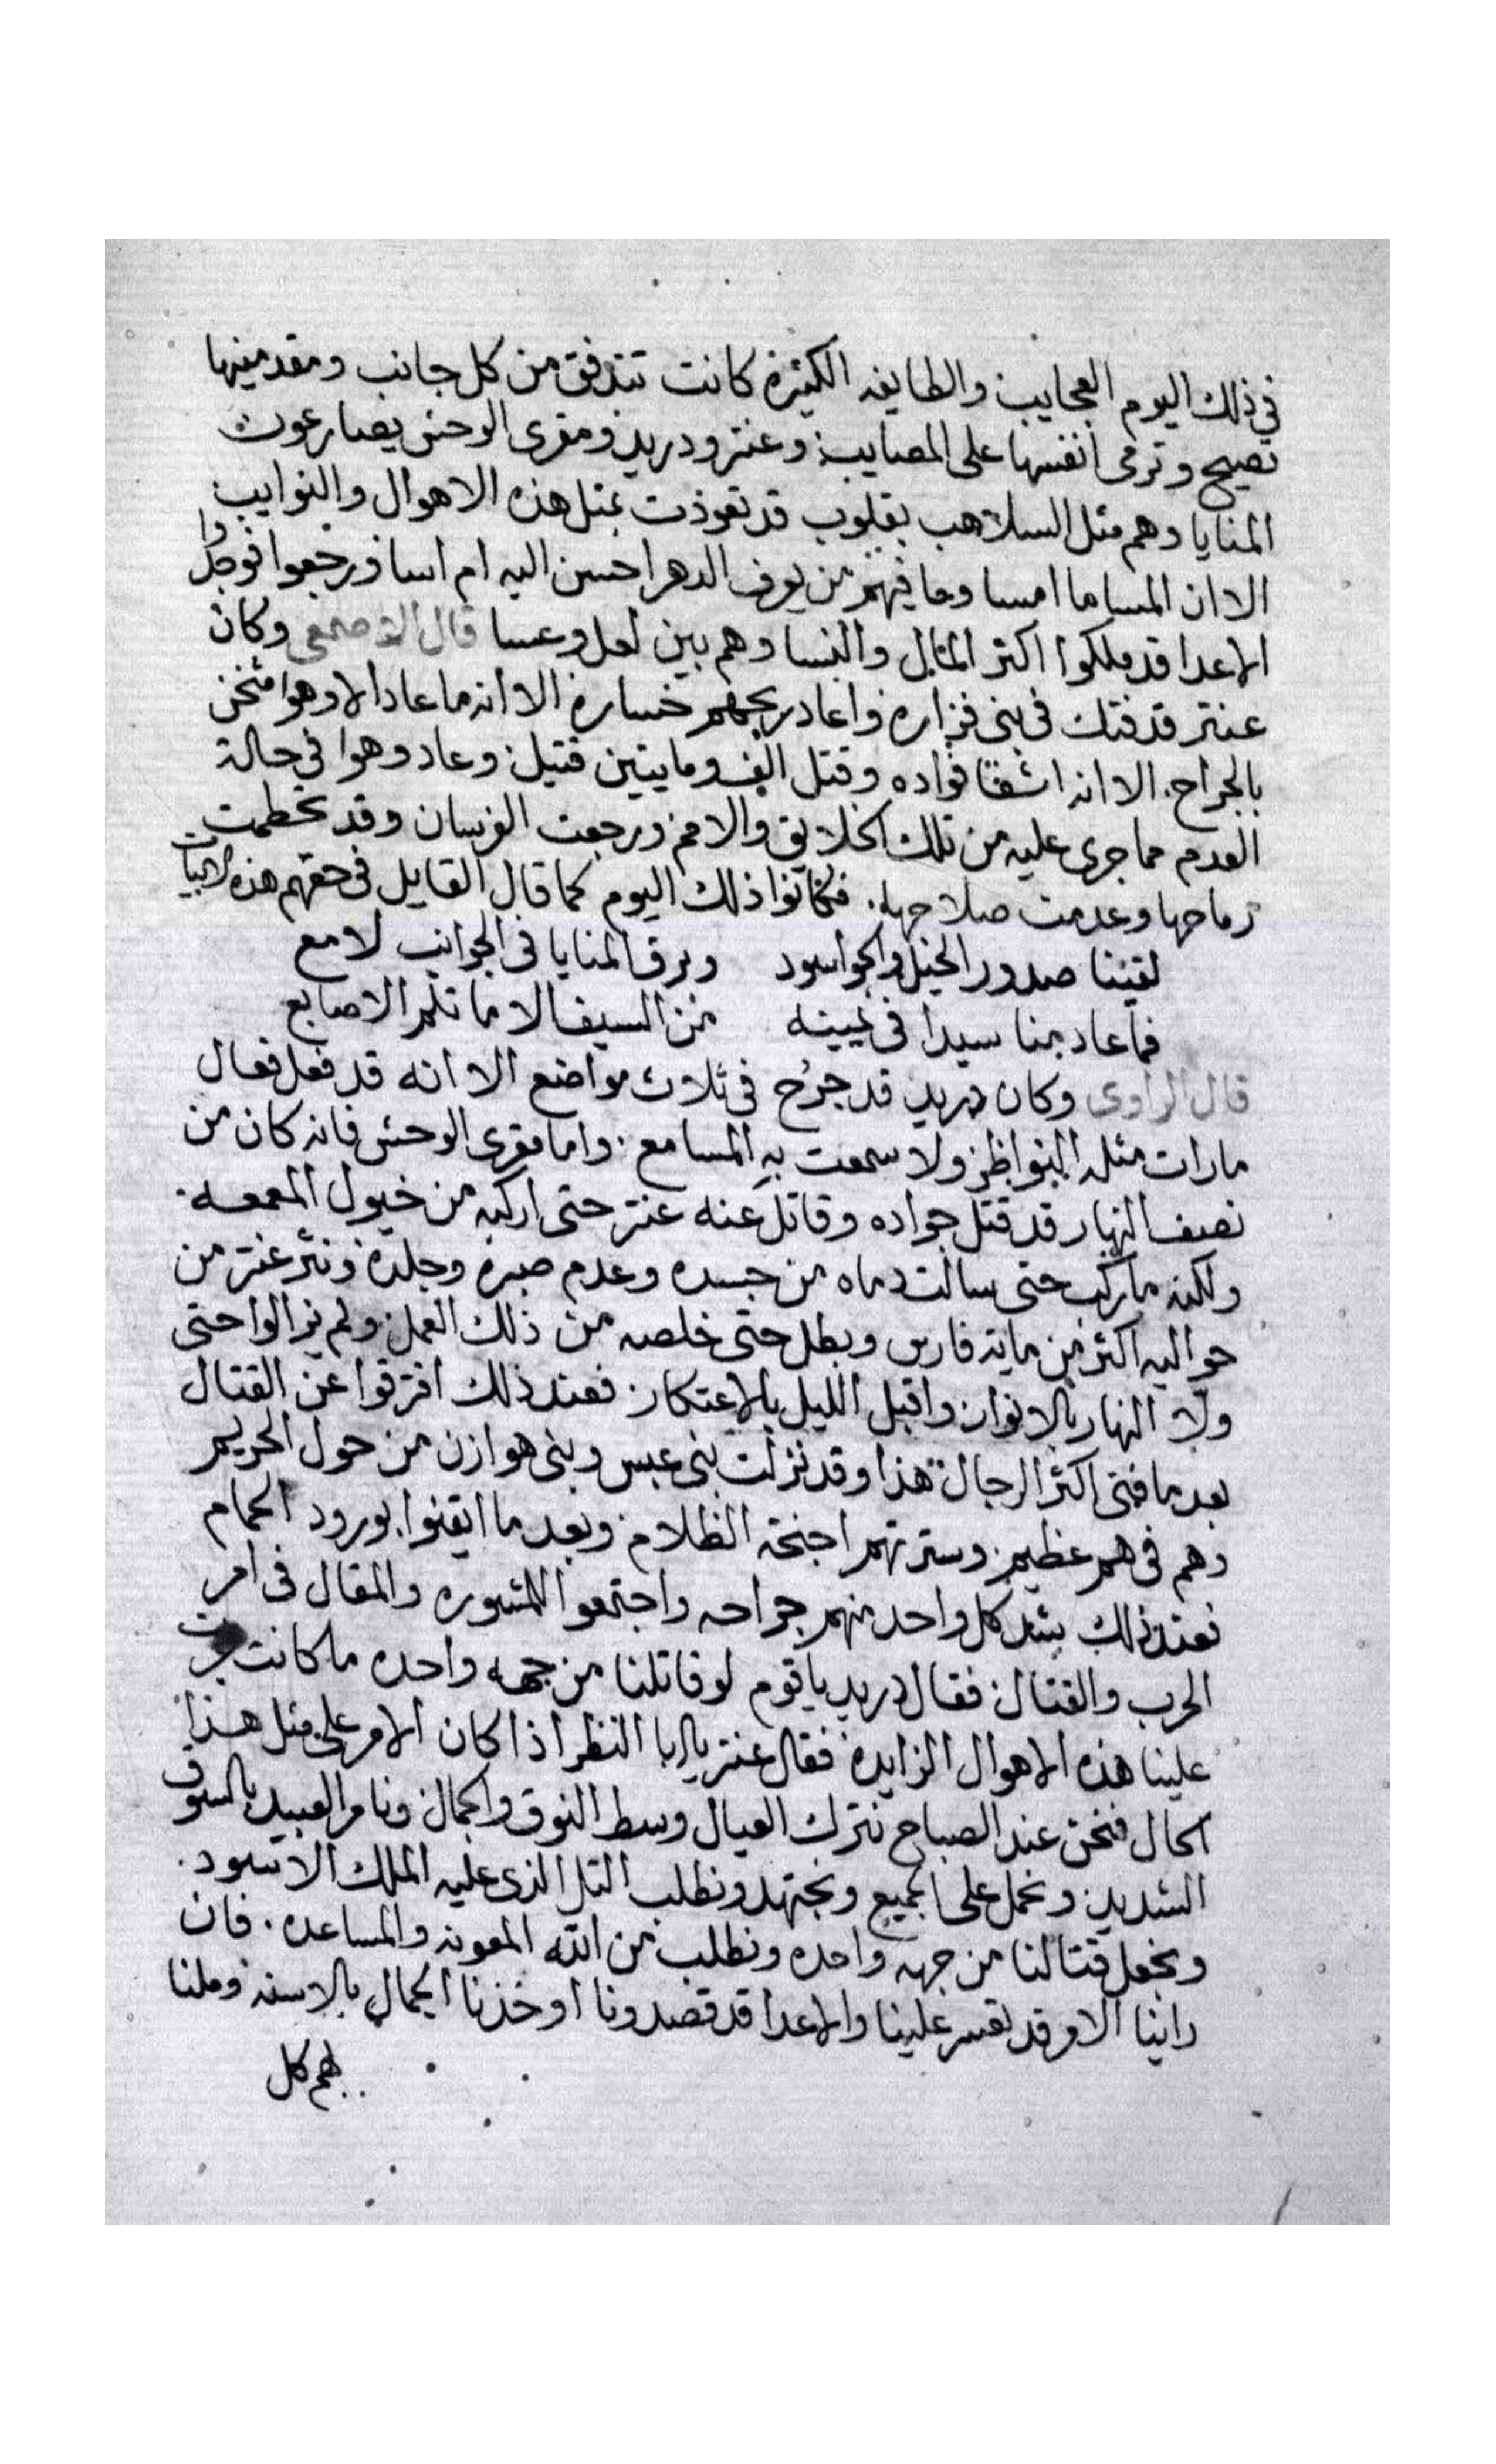 في ذلك اليوم العجايب والطايفه الكثيرة كانت تتدفق من كل جانب ومقدمينها
تصيح وترمى انفسها على المصايب وعنتر ودريد ومقرى الوحش يصارعون
المنايا وهم مثل السلاهب بقلوب قد تعوذت بمثل هذه الاهوال والنوايب
الا ان المسا ما امسا وما فيهم من يعرف الدهر احسن اليه ام اسا ورجعوا فوجدوا
الاعدا قد ملكوا اكثر المال والنسا وهم بين لعل وعسا قال الاصمعى وكان
عنتر قد فتك فى بنى فزاره واعاد ربحهم خساره الا انه ما عاد الا وهوا مثخن
بالجراح الا انه اشفا فواده وقتل الف ومايتين قتيل وعاد وهوا في حالة
العدم مما جرى عليه من تلك الخلايق والامم ورجعت الفرسان وقد تحطمت
رماحها وعدمت صلاحها فكانوا ذلك اليوم كما قال القايل فى حقهم هذه الابيات
لقيننا صدور الخيل والجو اسود وبرق المنايا فى الجوانب لامع
فما عاد منا سيدا فى يمينه من السيف الا ما تلم الاصابع
قال الراوى وكان دريد قد جرح فى ثلاث مواضع الا انه قد فعل فعال
مارات مثله النواظر ولا سمعت به المسامع واما مقرى الوحش فانه كان من
نصف النهار قد قتل جواده وقاتل عنه عنتر حتى اركبه من خيول المعمعه
ولكنه ما ركب حتى سالت دماه من جسده وعدم صبره وجلده ونثر عنتر من
حواليه اكثر من مايه فارس وبطل حتى خلصه من ذلك العمل ولم يزالوا حتى
ولا النهار بالانوار واقبل الليل بالاعتكار فعند ذلك افترقوا عن القتال
بعد ما فنى اكثر الرجال هذا وقد نزلت بنى عبس وبنى هوازن من حول الحريم
وهم فى هم عظيم وسترتهم اجنحة الظلام وبعد ما ايقنوا بورود الحمام
فعند ذلك شد كل واحد منهم جراحه واجتمعوا للمشوره والمقال فى امر
الحرب والقتال فقال دريد ياقوم لو قاتلنا من جهه واحده ما كانت جرت
علينا هذه الاهوال الزايده فقال عنتر يا ابا النظر اذا كان الامر على مثل هذا
الحال فنحن عند الصباح نترك العيال وسط النوق والجمال ونامر العبيد بالسوق
الشديد ونحمل على الجميع ونجتهد ونطلب التل الذى عليه الملك الاسود
ونجعل قتالنا من جهه واحده ونطلب من الله المعونه والمساعده فان
راينا الامر قد تعسر علينا والاعدا قد قصدونا اوخذنا الجمال بالاسنه وملنا
بهم كل